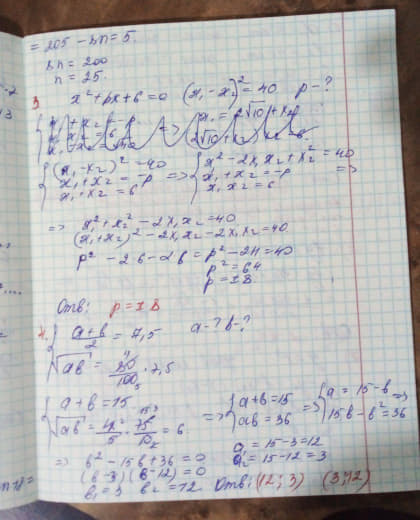 = 205 - 8n = 5.
8n = 200
n = 25.
3. x² + px + 6 = 0 (x₁ - x₂)² = 40 p - ?
{(x₁ - x₂)² = 40 x₁ + x₂ = -p x₁ x₂ = 6 => {x₁² - 2x₁x₂ + x₂² = 40 x₁ + x₂ = -p x₁ x₂ = 6 =>
=> x₁² + x₂² - 2x₁x₂ = 40
(x₁ + x₂)² - 2x₁x₂ - 2x₁x₂ = 40
p² - 2·6 - 2·6 = p² - 24 = 40
p² = 64
p = ±8.
Отв: p = ±8
4. {(a+b)/2 = 7,5 √ab = 80/100 · 7,5 a - ? b - ?
{a + b = 15 √ab = 4/5 · 75/10 = 6 => {a + b = 15 ab = 36 => {a = 15 - b 15b - b² = 36 =>
=> b² - 15b + 36 = 0 a₁ = 15 - 3 = 12
(b - 3)(b - 12) = 0 a₂ = 15 - 12 = 3
b₁ = 3 b₂ = 12 Отв: (12; 3) (3; 12)